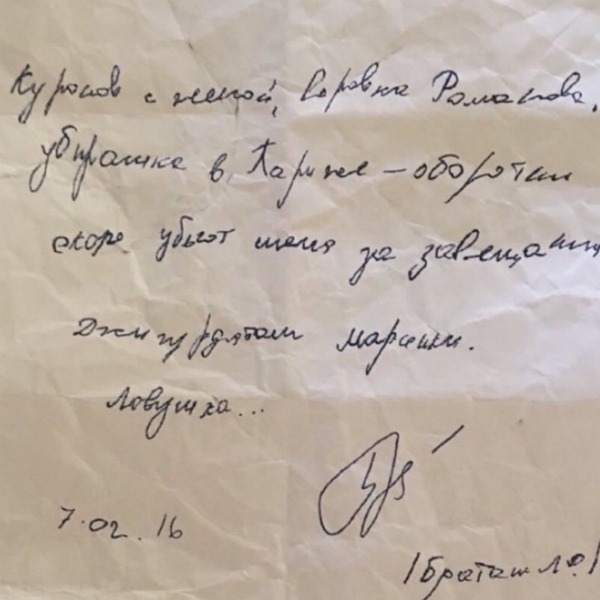 Куронов с женой, воровка Романова,
убирашка в Париже – оборотни
скоро убьют меня за завещание
Джигурдятам марсиши.
Ловушка...
7.02.16
/Браташ Л.